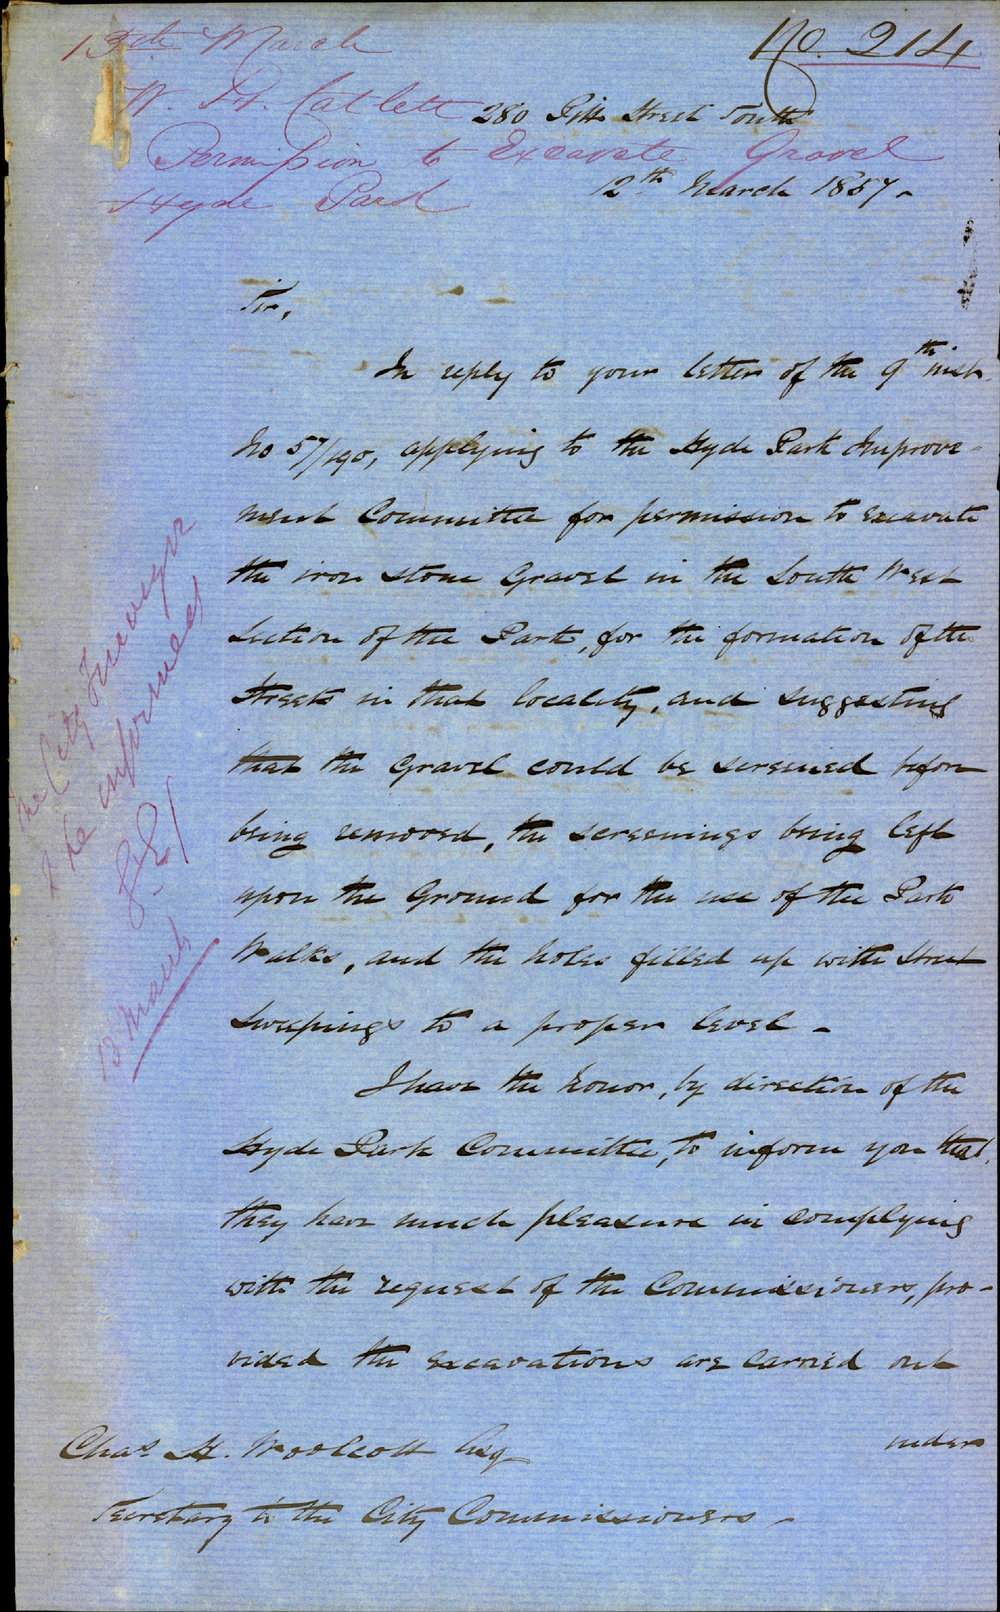 No. 214
13th March
W. H. Catlett
Permission to Excavate Gravel
Hyde Park
280 Pitt Street South
12th March 1857.
Sir,
In reply to your letter of the 9th inst.
No 57/190, applying to the Hyde Park Improve-
ment Committee for permission to excavate
the iron stone Gravel in the South West
Section of the Park, for the formation of the
Streets in that locality, and suggesting
that the Gravel could be screened before
being removed, the screenings being left
upon the Ground for the use of the Park
Walks, and the holes filled up with Street
Sweepings to a proper level -
I have the honor, by direction of the
Hyde Park Committee, to inform you that,
they have much pleasure in complying
with the request of the Commissioners, pro-
vided the excavations are carried out
under
Chas. H. Woolcott Esq
Secretary to the City Commissioners -
The City Surveyor
to be informed
13 March